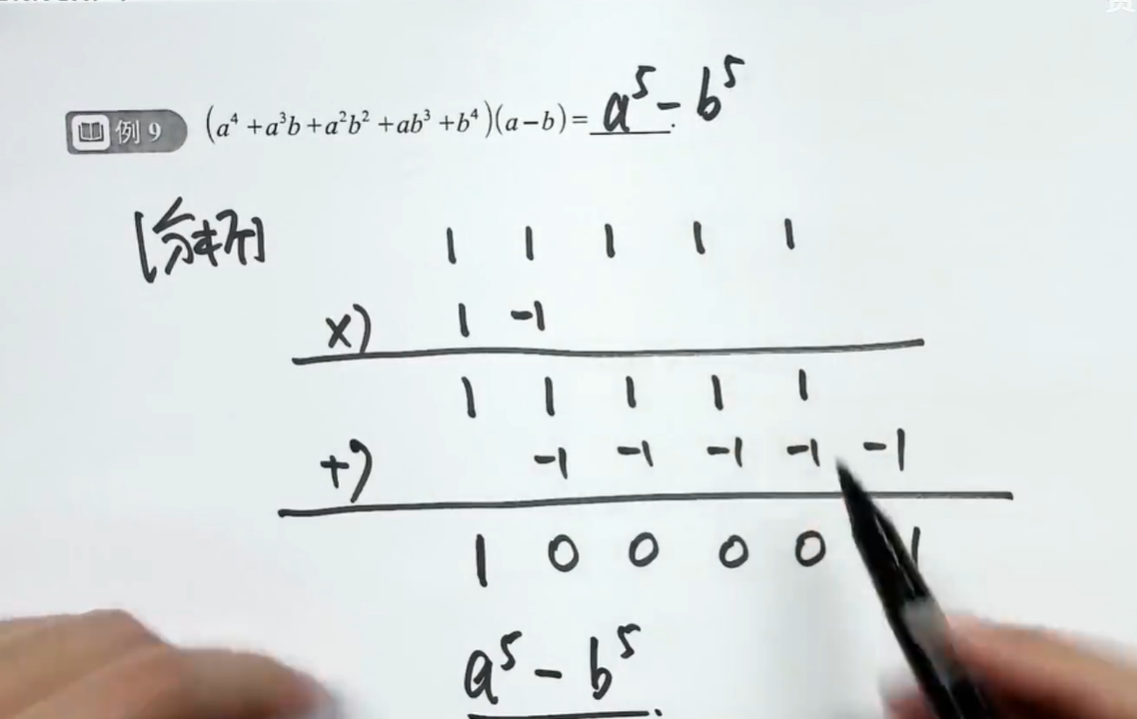 例 9 (a⁴+a³b+a²b²+ab³+b⁴)(a−b)= a⁵−b⁵
[分析] 1 1 1 1 1
×) 1 −1
1 1 1 1 1
+) −1 −1 −1 −1 −1
1 0 0 0 0 1
a⁵−b⁵.